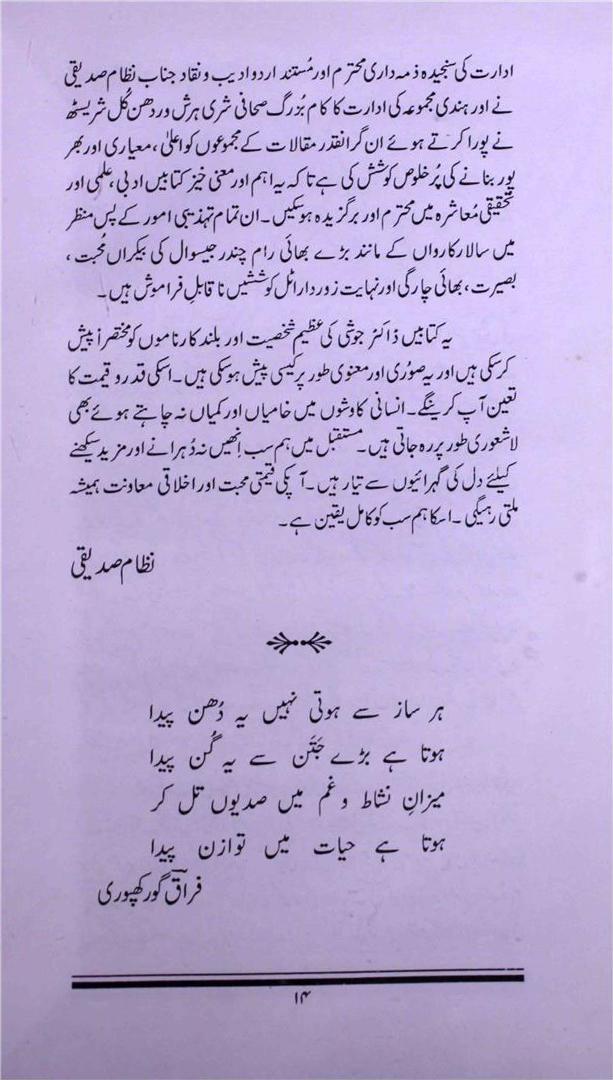 ادارت کی سنجیدہ ذمہ داری محترم اور مُستند اردو ادیب و نقاد جناب نظام صدیقی
نے اور ہندی مجموعہ کی ادارت کا کام بزرگ صحافی شری ہرش وردھن کُل شریسٹھ
نے پورا کرتے ہوئے ان گرانقدر مقالات کے مجموعوں کو اعلیٰ، معیاری اور بھر
پور بنانے کی پُر خلوص کوشش کی ہے تاکہ یہ اہم اور معنی خیز کتابیں ادبی، علمی اور
تحقیقی مُعاشرہ میں محترم اور برگزیدہ ہو سکیں۔ ان تمام تہذیبی امور کے پس منظر
میں سالار کارواں کے مانند بڑے بھائی رام چندر جیسوال کی بیکراں مُحبت،
بصیرت، بھائی چارگی اور نہایت زوردار اٹل کوششیں نا قابلِ فراموش ہیں۔
یہ کتابیں ڈاکٹر جوشی کی عظیم شخصیت اور بلند کارناموں کو مختصراً پیش
کرسکی ہیں اور یہ صوُری اور معنوی طور پر کیسی پیش ہو سکی ہیں۔ اسکی قدر و قیمت کا
تعین آپ کرینگے۔ انسانی کاوشوں میں خامیاں اور کمیاں نہ چاہتے ہوئے بھی
لا شعوری طور پر رہ جاتی ہیں۔ مستقبل میں ہم سب اِنھیں نہ دُہرانے اور مزید سیکھنے
کیلئے دل کی گہرائیوں سے تیار ہیں۔ آپکی قیمتی محبت اور اخلاقی معاونت ہمیشہ
ملتی رہیگی۔ اسکا ہم سب کو کامل یقین ہے۔
نظام صدیقی
ہر ساز سے ہوتی نہیں یہ دُھن پیدا
ہوتا ہے بڑے جَتَن سے یہ گُن پیدا
میزانِ نشاط و غم میں صدیوں تل کر
ہوتا ہے حیات میں توازن پیدا
فراقؔ گورکھپوری
۱۴